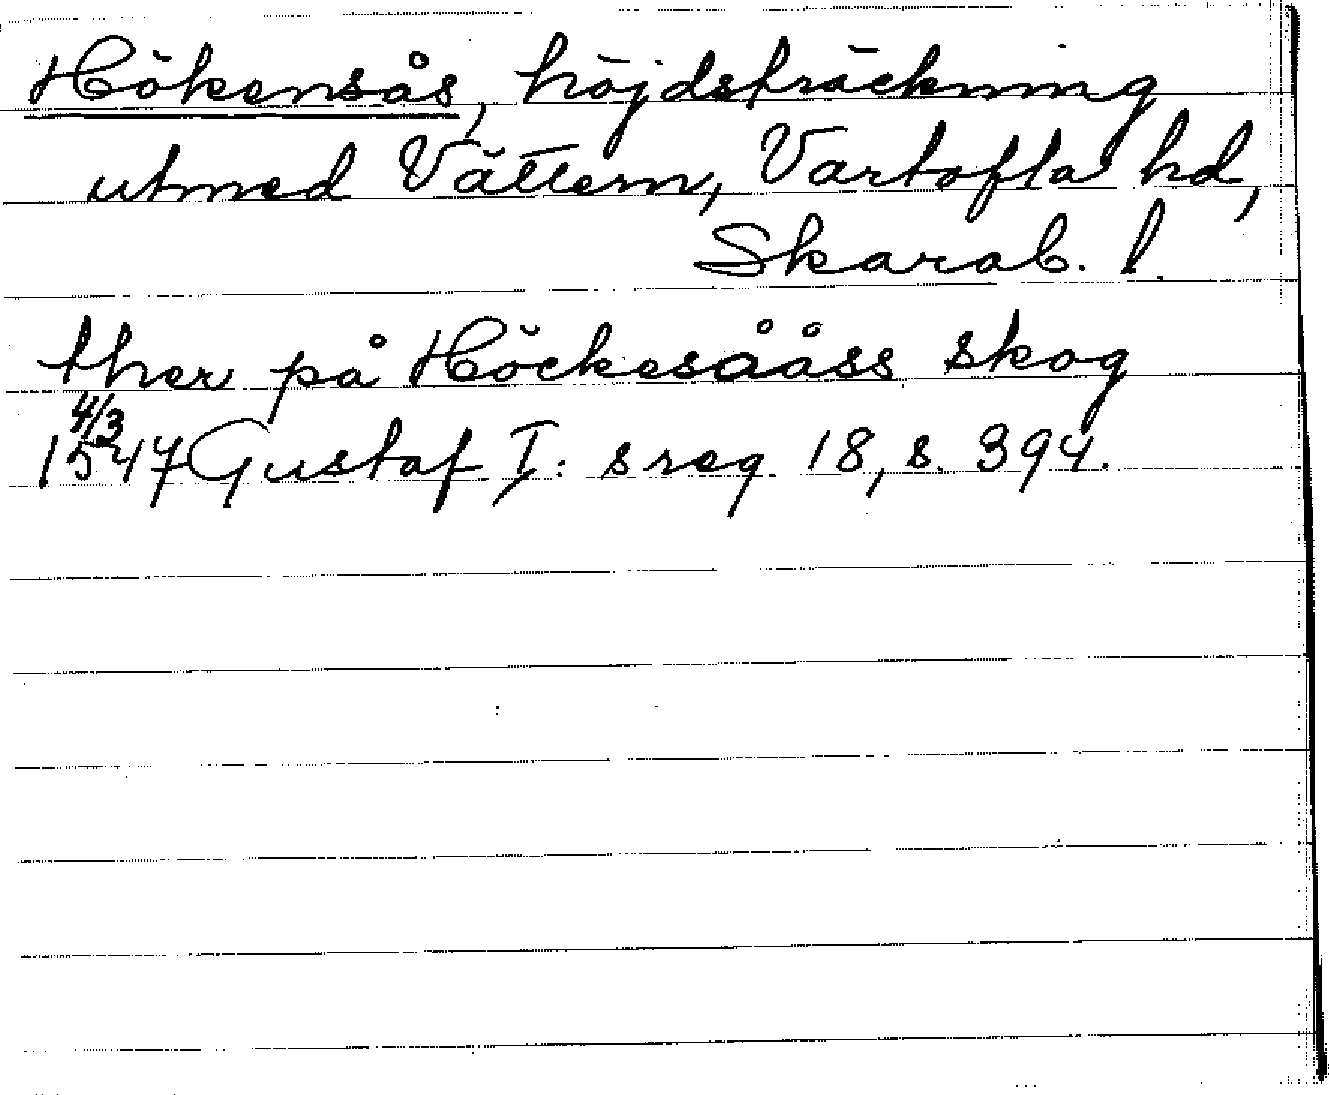 Hökensås, höjdsträckning
utmed Vättern, Vartofta hd,
Skarab. l.
ther på Höckesååss skog
4/3
1547 Gustaf I: s reg. 18, s. 394.